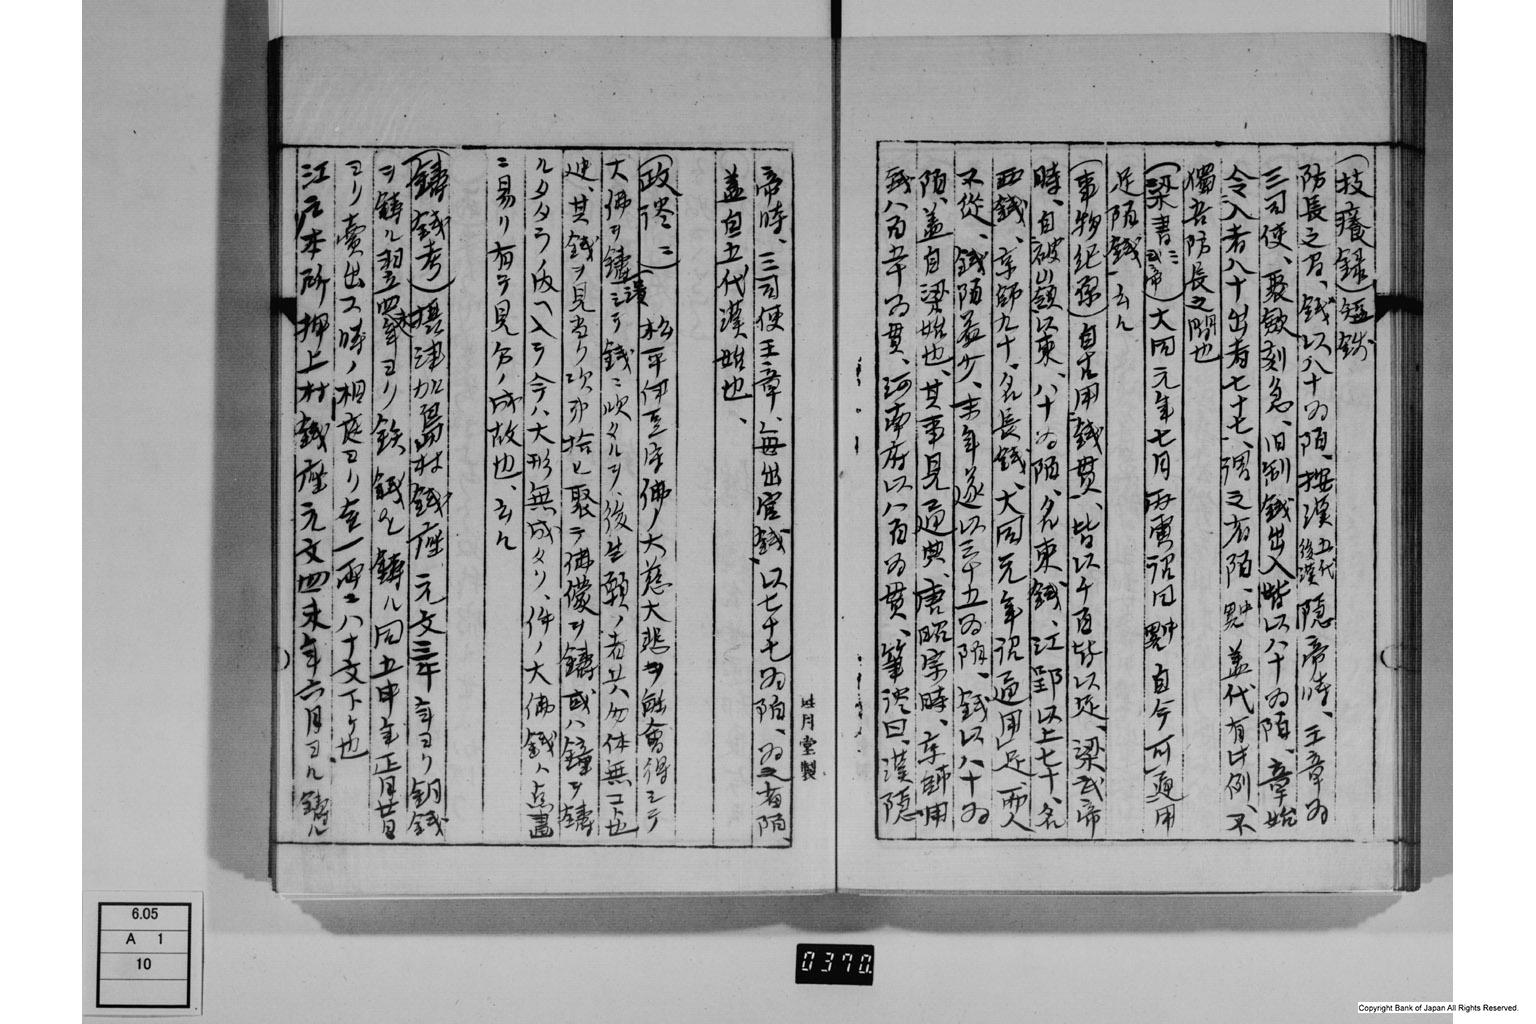 (技癢録)短銭
防長之間、銭以八十為陌、按漢五代後漢隠帝時、王章為
三司使、聚斂刻急、旧制銭出入皆以八十為陌、章始
令入者八十出者七十七、謂之省陌、蓋代有此例、不
獨吾防長之間也
(梁書三武帝)大同元年七月丙寅詔曰 自今可通用
足陌銭、云々
(事物紀原)自古用銭貫、皆以千百皆以足、梁武帝
時、自破嶺以東、八十為陌、名東銭、江郢以上七十、名
西銭、京師九十、名長銭、大同元年詔通用足、而人
不從、銭陌益少、末年遂以三十五為陌、銭以八十為
陌、蓋自梁始也、其事見通典、唐昭宗時、京師用
銭八百五十為貫、河南府以八百為貫、筆談曰、漢隠
帝時、三司使王章、毎出官銭、以七十七為陌、為之省陌、
蓋自五代漢始也、
(政談二)松平伊豆守佛ノ大慈大悲ヲ能會得シテ
大佛ヲ鑄潰シテ銭ニ吹タルヲ、後生願ノ者共ハ勿体無コト也
迚、其銭ヲ見当リ次第拾ヒ聚テ佛像ヲ鑄或ハ鐘ヲ鑄
ルタタラノ内ヘ入テ今ハ大形無成タリ、件ノ大佛銭ハ点畫
ニ易リ有テ見分ノ成故也、云々
(鑄銭考)摂津加島村銭座 元文三年 ヨリ銅銭
ヲ鑄ル翌四未年ヨリ鉄銭ヲ鑄ル同五申年正月廿日
ヨリ賣出ス時ノ相庭ヨリ金一両ニ八十文下ケ也、
江戸本所押上村銭座元文四未年六月ヨリ鑄ル
0370
6.05
A 1
10
Copyright Bank of Japan All Rights Reserved.